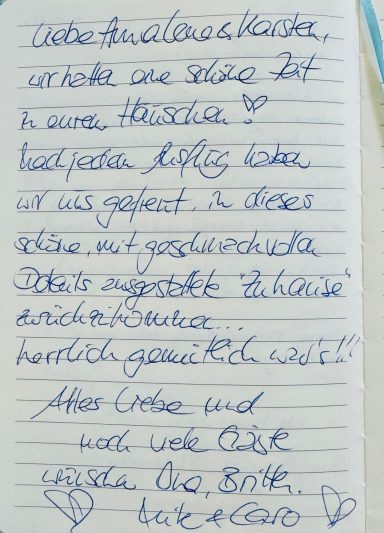 Liebe Annalena & Karsten,
wir hatten eine schöne Zeit
in eurem Häuschen!
Nach jedem Ausflug haben
wir uns gefreut, in dieses
schöne, mit geschmackvollen
Details ausgestattete "Zuhause"
zurückzukommen...
herrlich gemütlich war's!!!
Alles Liebe und
noch viele Gäste
wünschen Britta,
& Caro